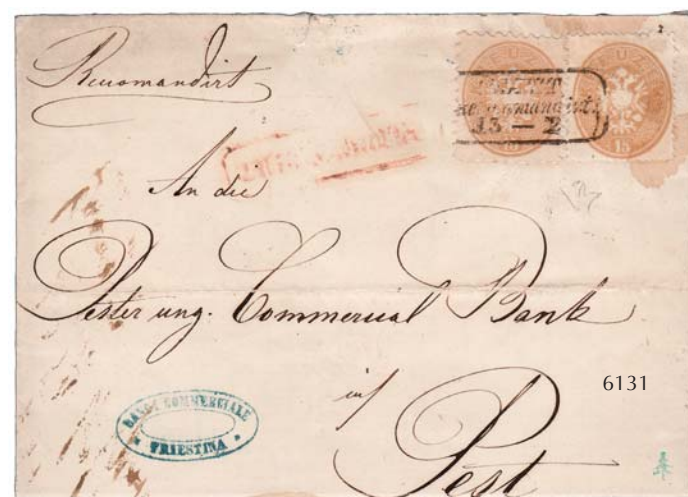 Recomandirt
recomandirt.
13 — 2
15
An die
Pester ung. Commercial Bank
in
Pest
BANCA COMMERCIALE
* TRIESTINA *
6131